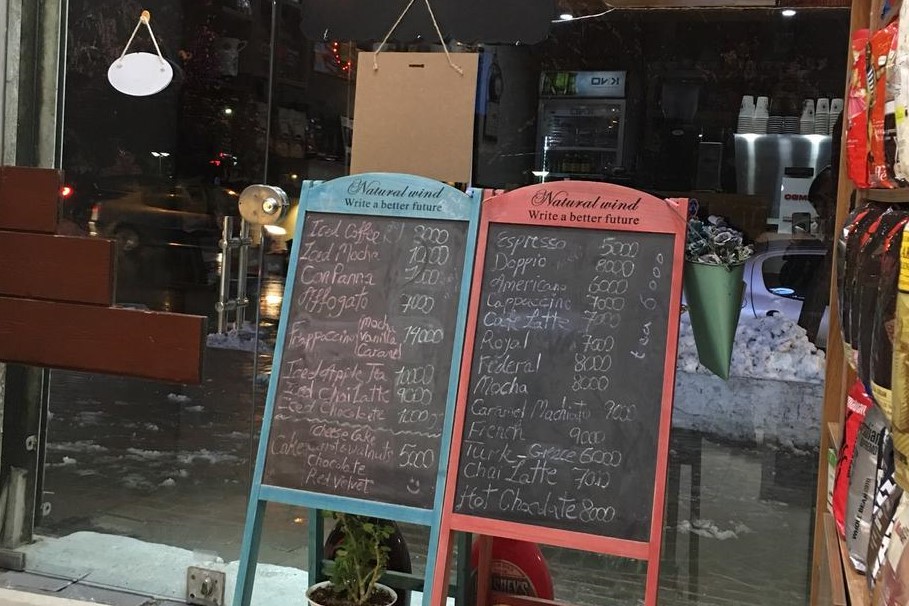 Natural wind
Write a better future
Iced Coffee 9000
Iced Mocha 10000
Con Panna 7000
Affogato 7000
Frappaccino Mocha Vanilla Caramel 14000
Iced Apple Tea 10000
Iced Chai Latte 9000
Iced Chocolate 10000
Cheese Cake
Cake Carrot & walnuts 5000
Chocolate
Red Velvet
Natural wind
Write a better future
Espresso 5000
Doppio 8000
Americano 6000
Cappuccino 7000
Cafe Latte 7000
Royal 7000
Federal 8000
Mocha 8000
Caramel Machiato 9000
French 9000
Turk - Greece 6000
Chai Latte 7000
Hot Chocolate 8000
tea 6000